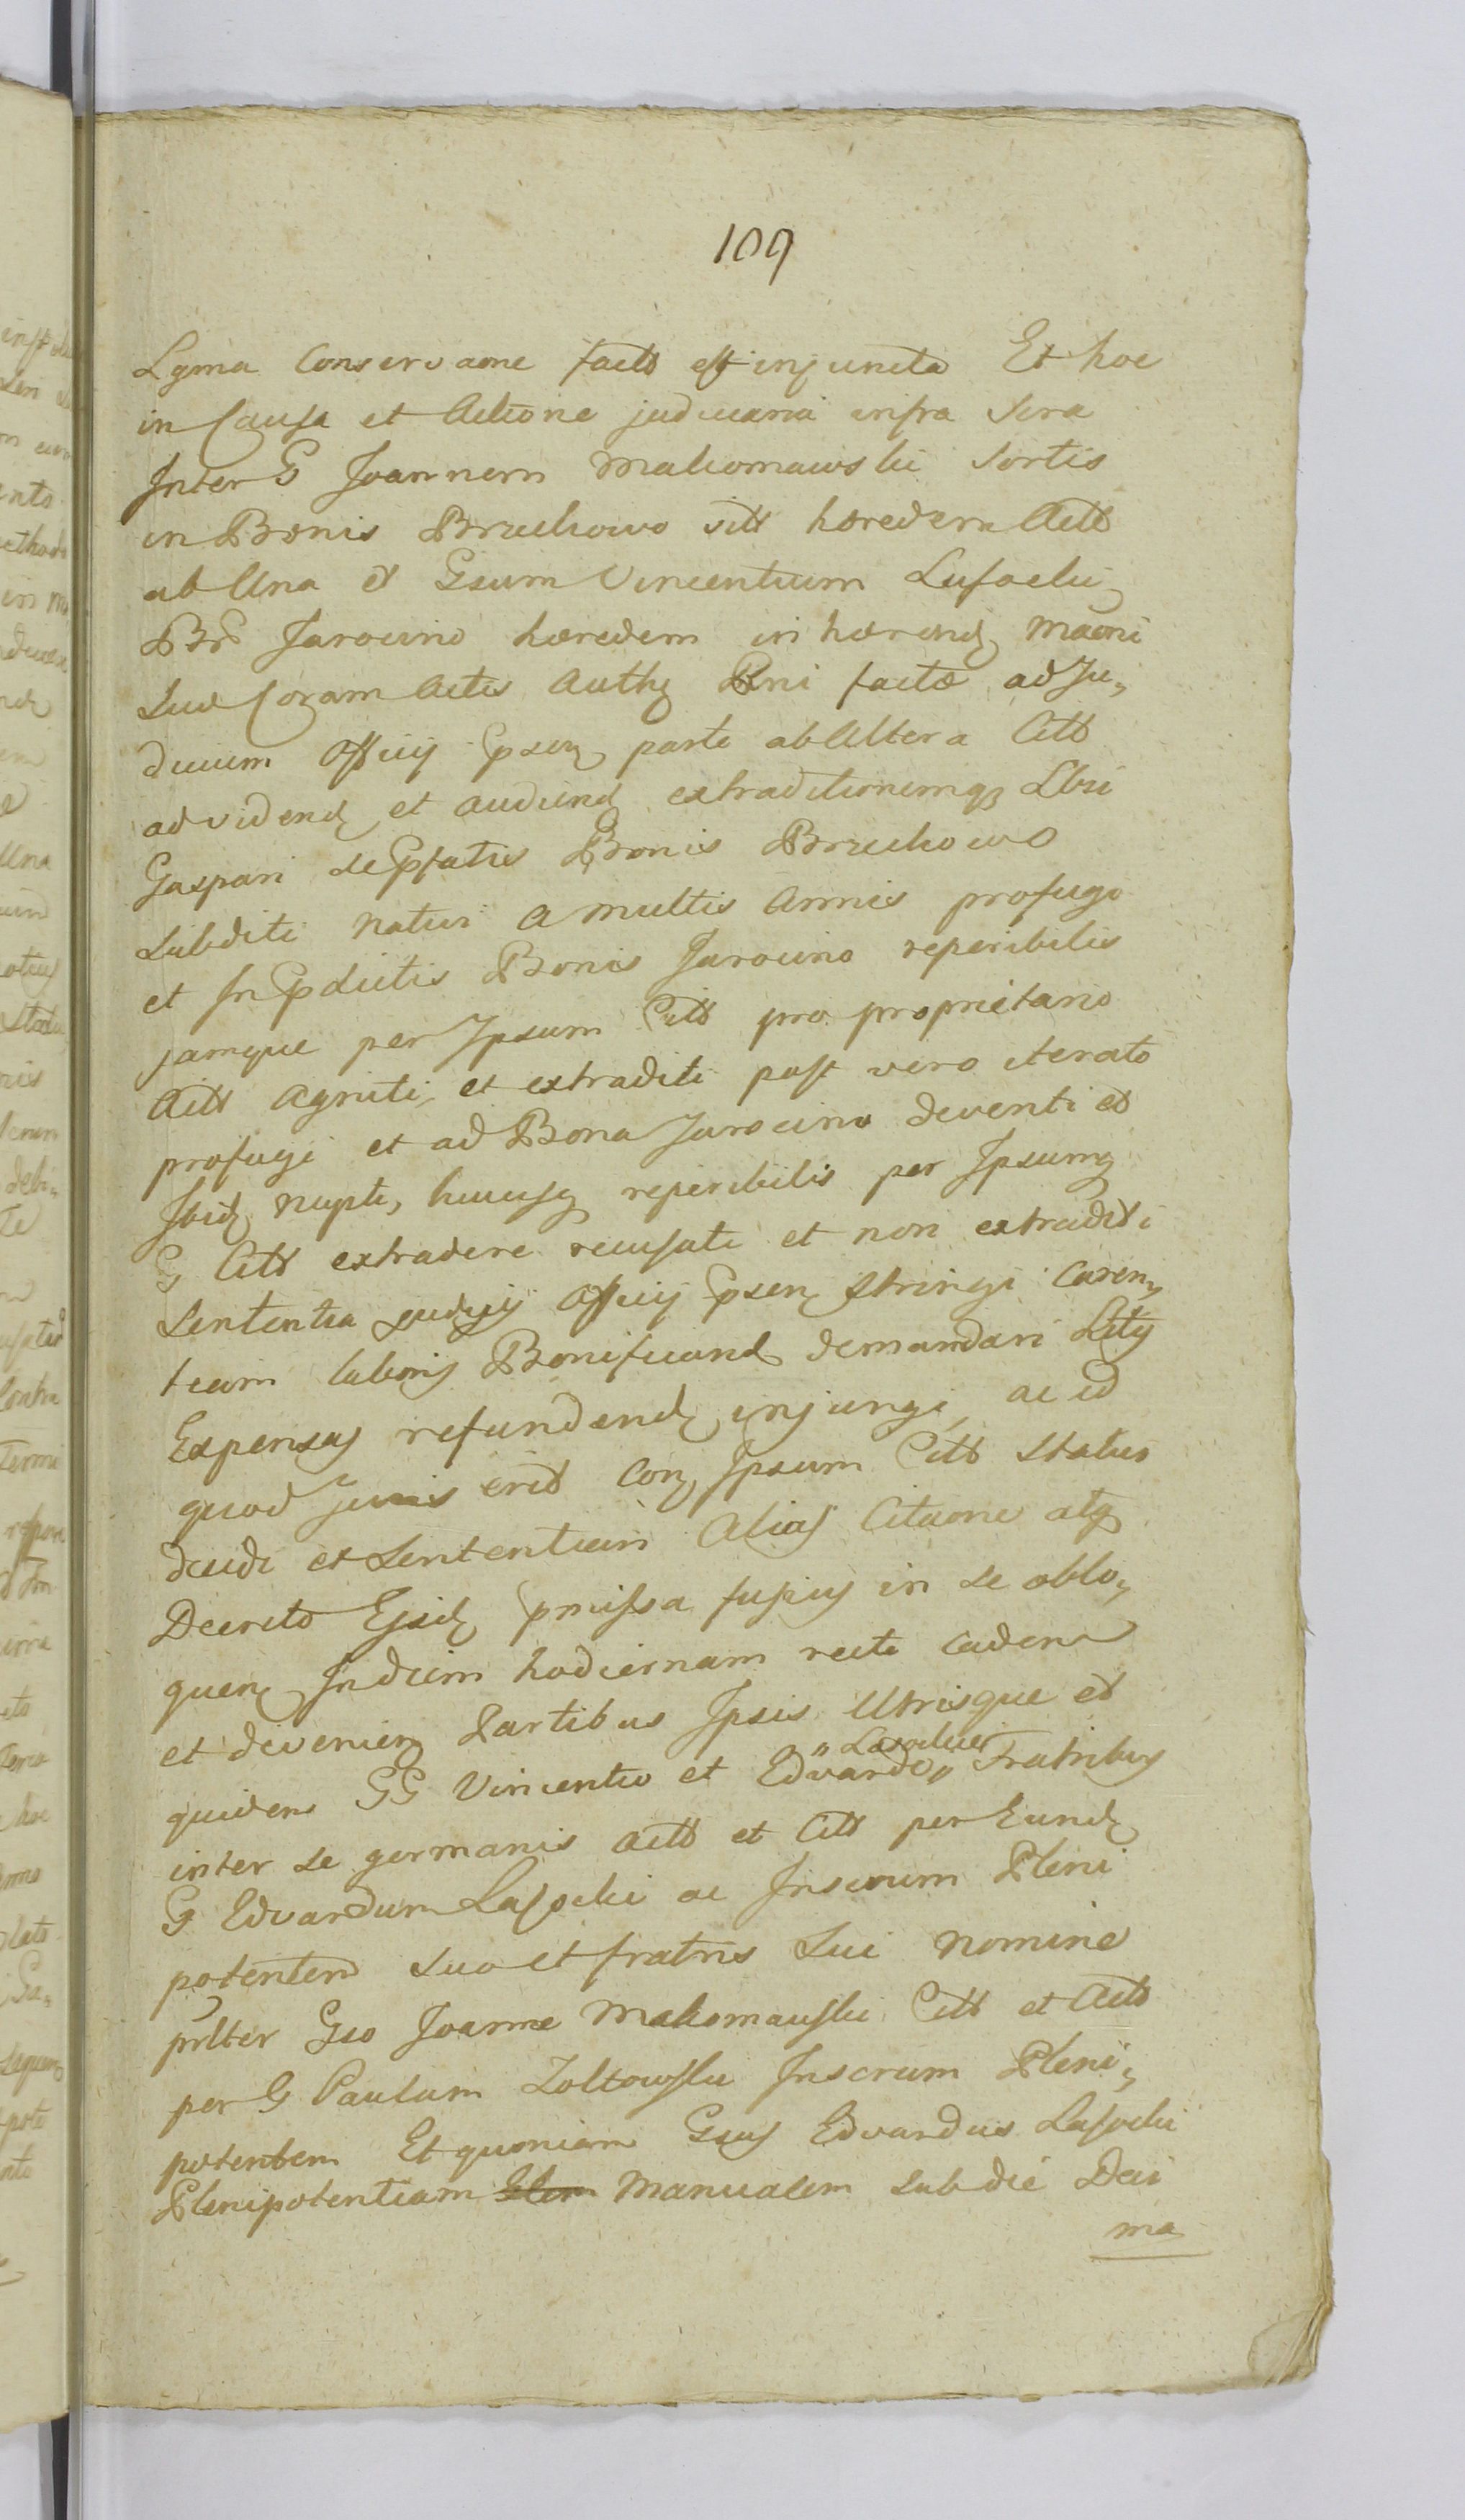 109
Lgma Conservaone factt est injuncta Et hoc
in Causa et Actione judiciaria infra Scra
Inter G Joannem Makomawski Sortis
in Bonis Brzechowo sitt hæredem Actt
ab Una et Gsum Vincentium Lasocki
BB Jarocino hæredem in hærend Maoni
suæ Coram Actis Auth Pni factæ ad Ju,
dicium Officij Psen parte ab Altera Citt
ad vidend et audiend extraditionemq Lbsi
Gaspari de Pfatis Bonis Brzechowo
subditi nativi a multis Annis profugi
et In Pdictis Bonis Jarocino reperibilis
jamque per Ipsum Citt pro proprietario
Actt Agniti, et extraditi post vero iterato
profugi et ad Bona Jarocino deventi et
Ibid nupti, hucusq reperibilis per Ipsum
G Citt extradere recusati et non extraditi
Sententia judicij Officij Psen stringi Caren,
tiam laboris Bonificand demandari Litis
Expensas refundend injungi, ac id
quod Juris erit Con Ipsum Citt statui
decidi et Sententiari Alias Citaone atq
Decreto Ejsid Pmissa fusius in se oblo,
quen In diem hodiernam recte caden
et devenien Partibus Ipsis Utrisque et
quidem GG Vincentio et Edvardo „Lasockie„ Fratribus
inter se germanis Actt et Citt per Eund
G Edvardum Lasocki ac Inscrum Pleni
potentem suo et fratris sui nomine
prlter Gso Joanne Makomawski Citt et Actt
per G Paulum Zoltowski Inscrum Pleni,
potentem Et quoniam Gsus Edvardus Lasocki
Plenipotentiam Manualem sub die Deci
ma